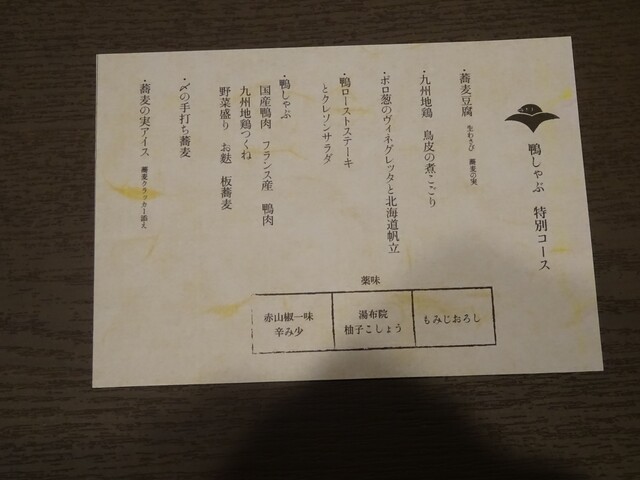 鴨しゃぶ 特別コース
・蕎麦豆腐 生わさび 蕎麦の実
・九州地鶏 鳥皮の煮こごり
・ポロ葱のヴィネグレッタと北海道帆立
・鴨ローストステーキ
とクレソンサラダ
・鴨しゃぶ
国産鴨肉 フランス産 鴨肉
九州地鶏つくね
野菜盛り お麩 板蕎麦
・〆の手打ち蕎麦
・蕎麦の実アイス 蕎麦クラッカー添え
薬味
赤山椒一味
辛み少
湯布院
柚子こしょう
もみじおろし